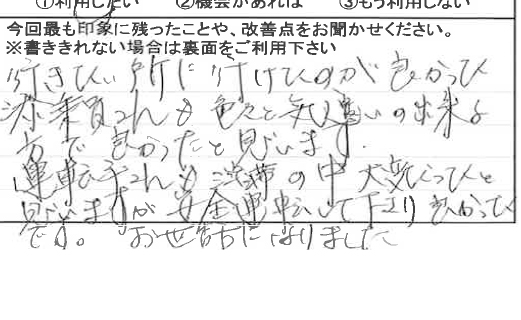 ①利用したい ②機会があれば ③もう利用しない
今回最も印象に残ったことや、改善点をお聞かせください。
※書ききれない場合は裏面をご利用下さい
行きたい所に行けたのが良かった
添乗員さんも色々と気遣いの出来る
方で良かったと思います。
運転手さんも渋滞の中大変だったと
思いますが安全運転して下さり良かった
です。お世話になりました